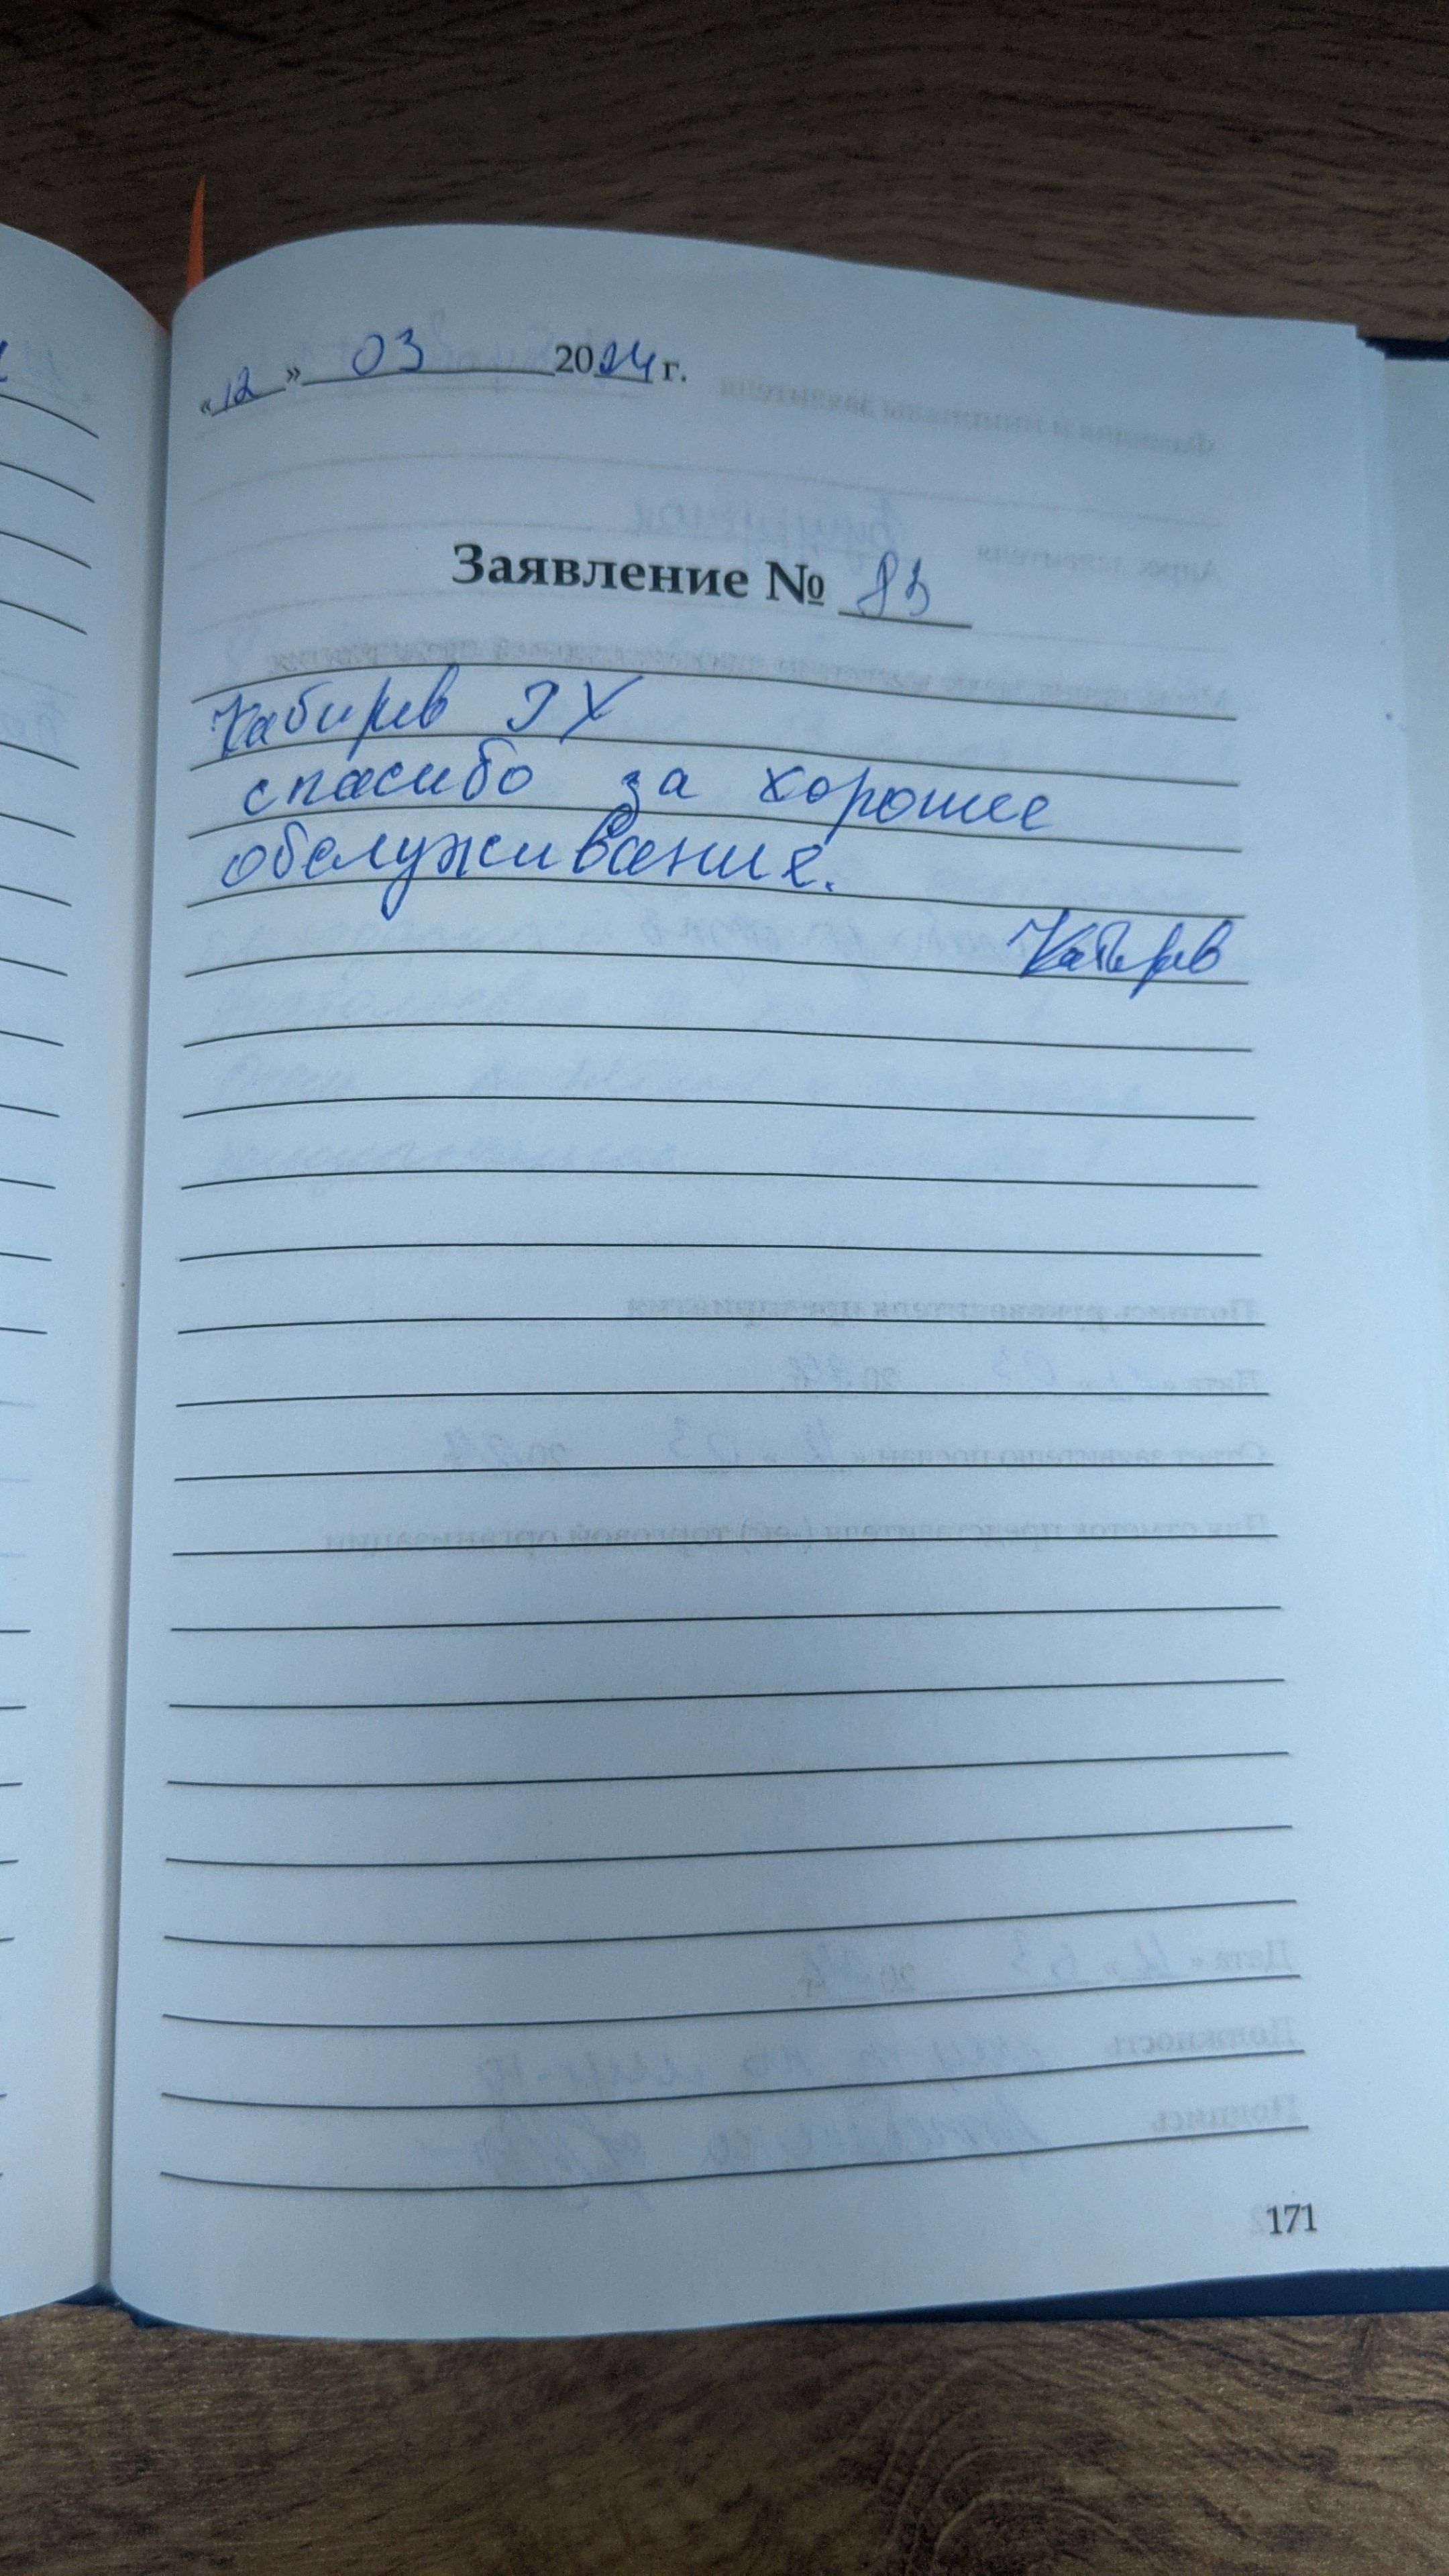 «12» 03 2024 г.
Заявление № 83
Кабиров Э Х
спасибо за хорошее
обслуживание.
Кабиров
171